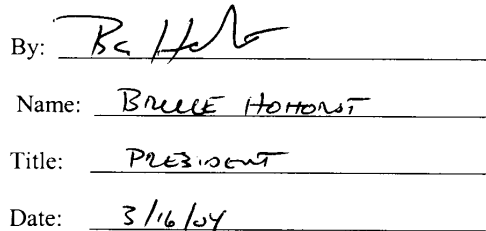 By:
Name: BRUCE HOHORST
Title: PRESIDENT
Date: 3/16/04